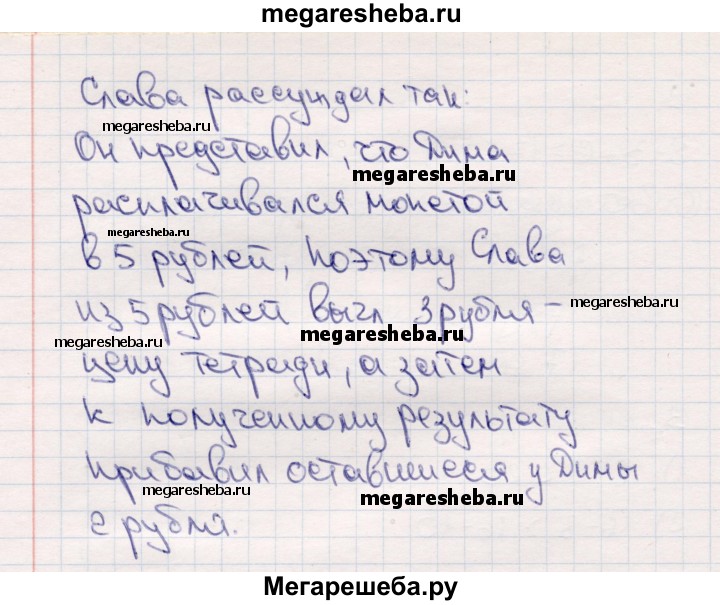 megaresheba.ru
Слава рассуждал так:
megaresheba.ru
Он представил, что Дима
megaresheba.ru
расплачивался монетой
megaresheba.ru
в 5 рублей, поэтому Слава
из 5 рублей вычл 3 рубля –
megaresheba.ru
megaresheba.ru
megaresheba.ru
цену тетради, а затем
к полученному результату
прибавил оставшиеся у Димы
megaresheba.ru
megaresheba.ru
2 рубля.
Мегарешеба.ру